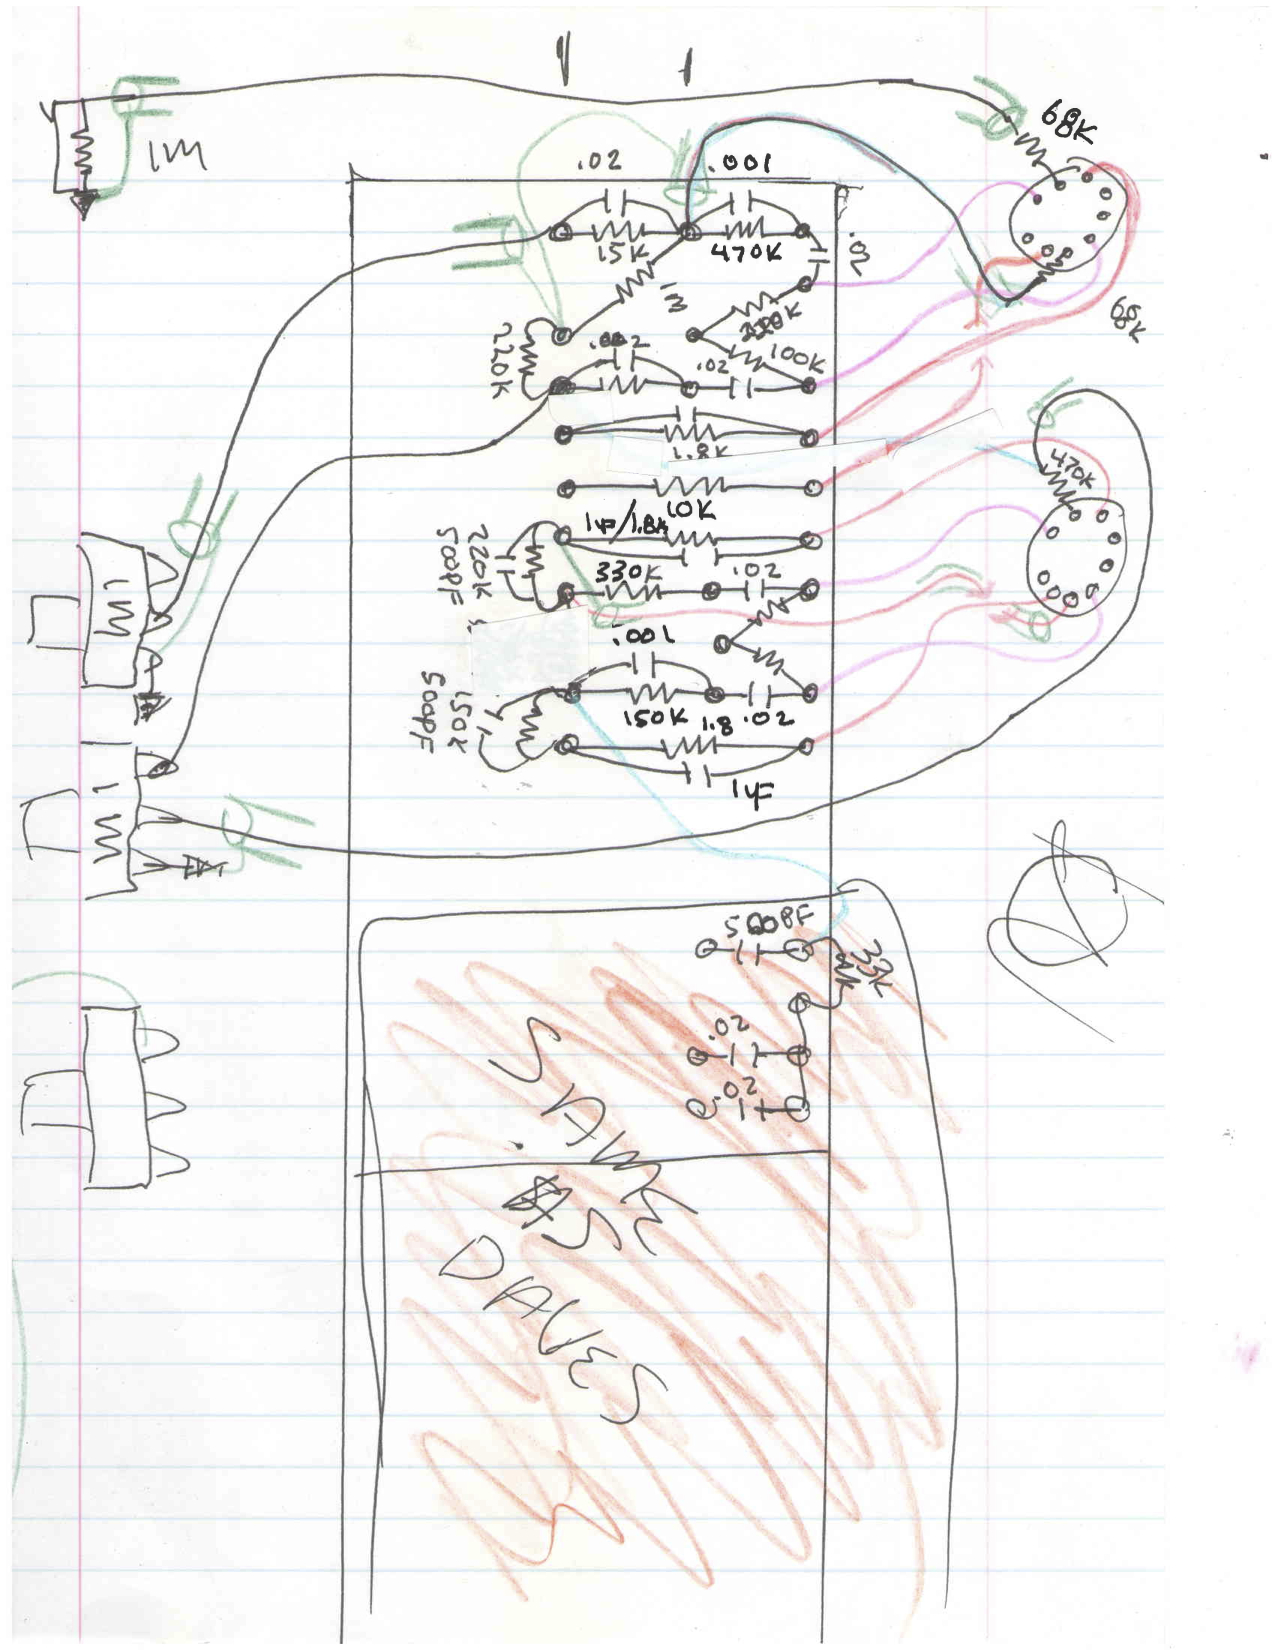 68K
1M
.02
.001
15K
470K
.02
1M
220K
.002
100K
.02
68K
1.8K
470K
10K
1µF/1.8K
220K
500PF
330K
.02
.001
1M
150K
1.8
.02
150K
500PF
1µF
1M
500PF
33K
.02
.02
SAME
AS
DAVES